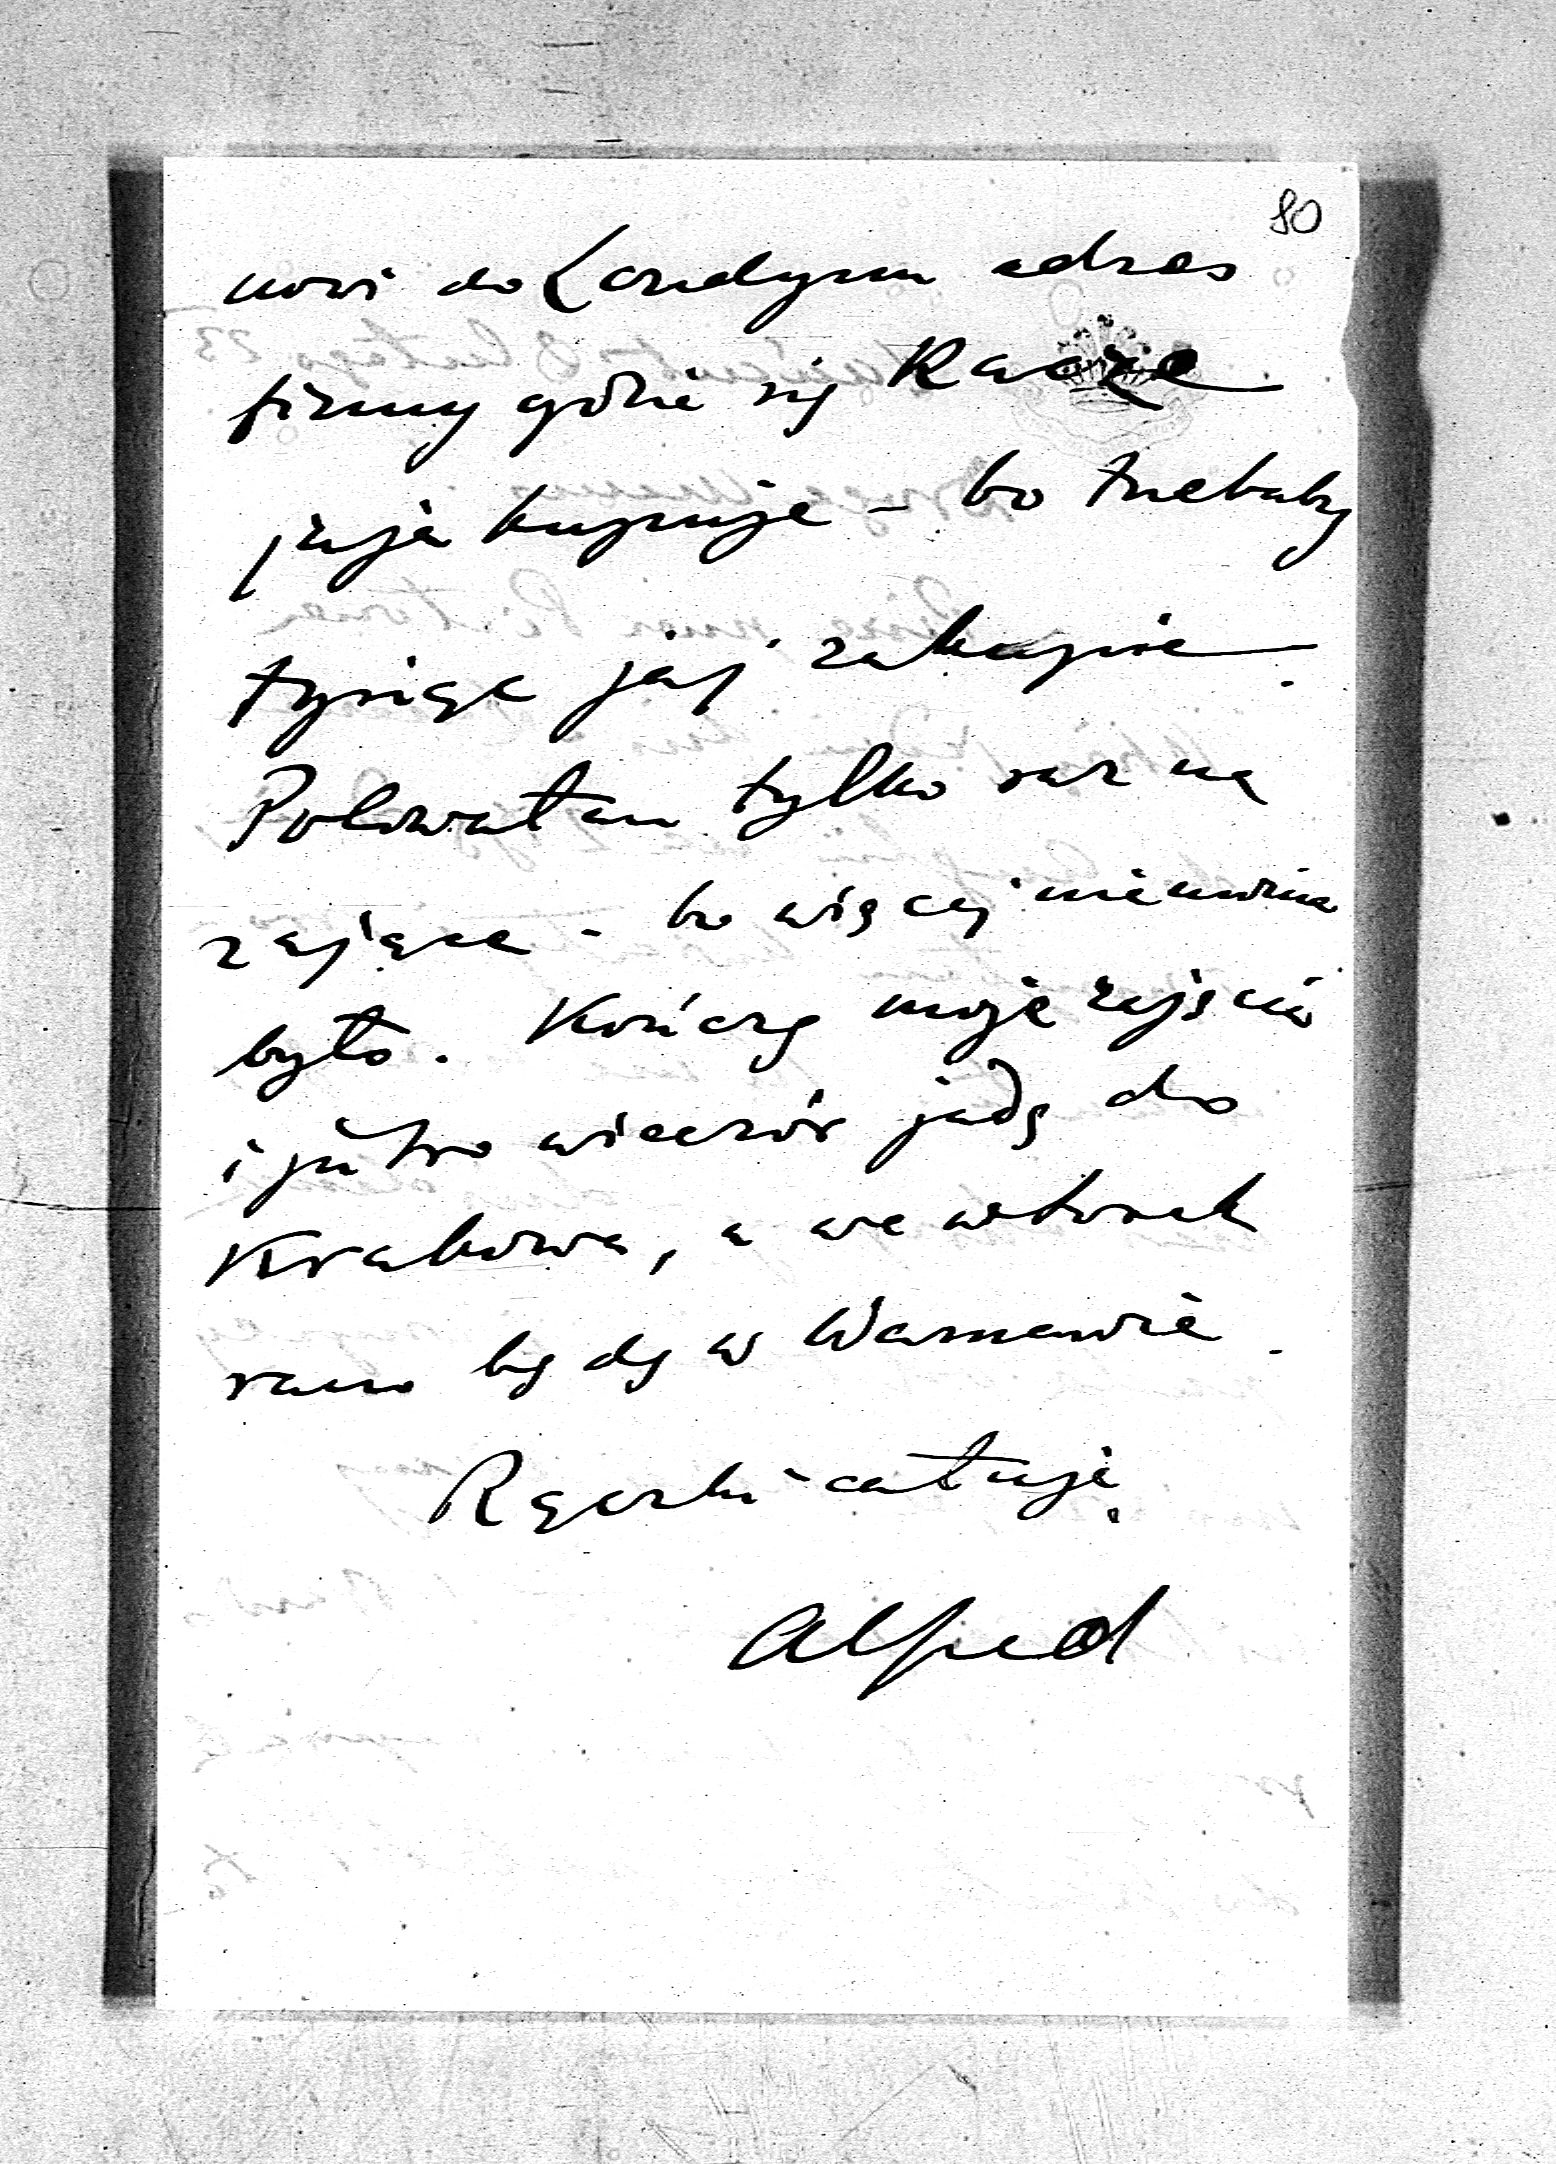 80
nowi do Londynu adres
firmy gdzie się Kacze
jaja kupuje – bo trzebaby
tysiąc jaj zakupić.
Polowałem tylko raz na
zające – bo więcej nie można
było. Kończę moje zajęcia
i jutro wieczór jadę do
Krakowa, a we wtorek
rano będę w Warszawie.
Rączki całuję
Alfred